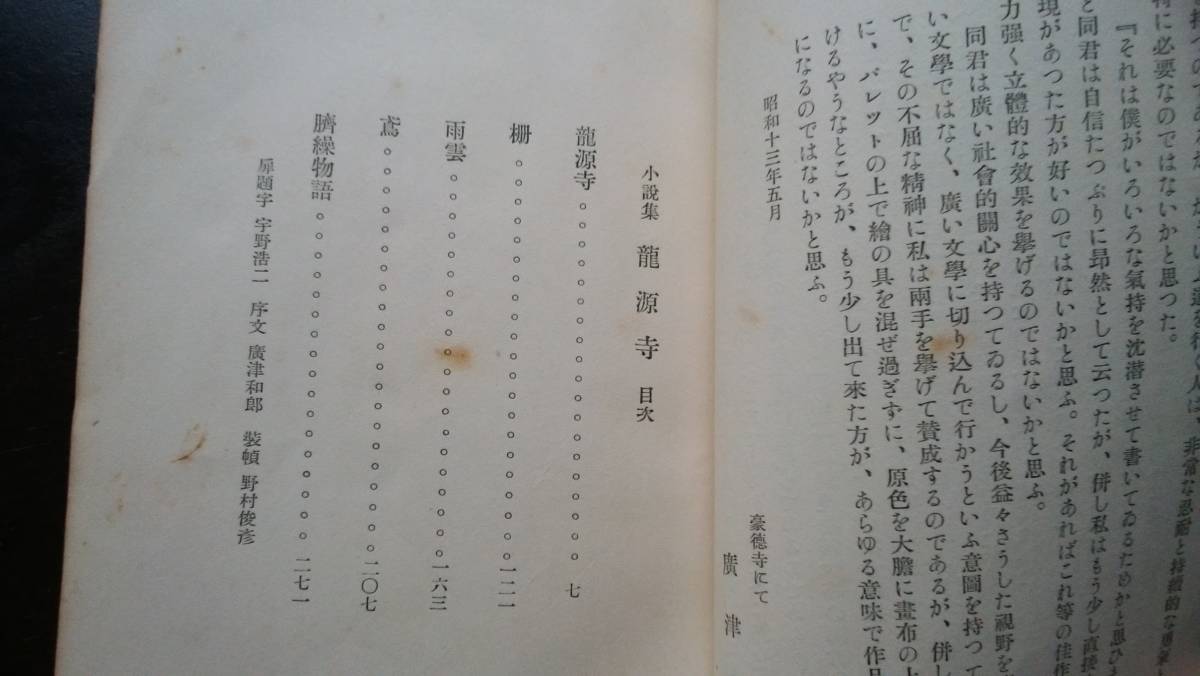 特に必要なのではないかと思つた。
『それは僕がいろいろな氣持を沈潜させて書いてゐるためかと思ひ
と同君は自信たつぷりに昻然として云つたが、併し私はもう少し直接
現があつた方が好いのではないかと思ふ。それがあればこれ等の佳作
力強く立體的な效果を擧げるのではないかと思ふ。
同君は廣い社會的關心を持つてゐるし、今後益々さうした視野を
い文學ではなく、廣い文學に切り込んで行かうといふ意圖を持つて
で、その不屈な精神に私は兩手を擧げて賛成するのであるが、併し
に、パレットの上で繪の具を混ぜ過ぎずに、原色を大膽に畫布の上
けるやうなところが、もう少し出て來た方が、あらゆる意味で作品
になるのではないかと思ふ。
昭和十三年五月
豪德寺にて
廣津
小說集 龍源寺 目次
龍源寺。。。。。。。。。。。。。。。。。。七
柵。。。。。。。。。。。。。。。。。。一二一
雨雲。。。。。。。。。。。。。。。。。一六三
鳶。。。。。。。。。。。。。。。。。。二〇七
臍繰物語。。。。。。。。。。。。。。。二七一
扉題字 宇野浩二 序文 廣津和郎 裝幀 野村俊彥